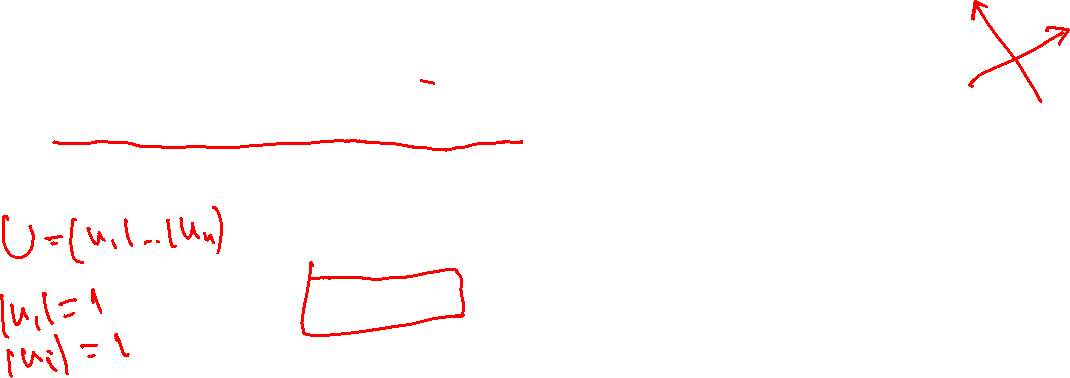 U = (u₁|...|uₙ)
|u₁| = 1
|uᵢ| = 1